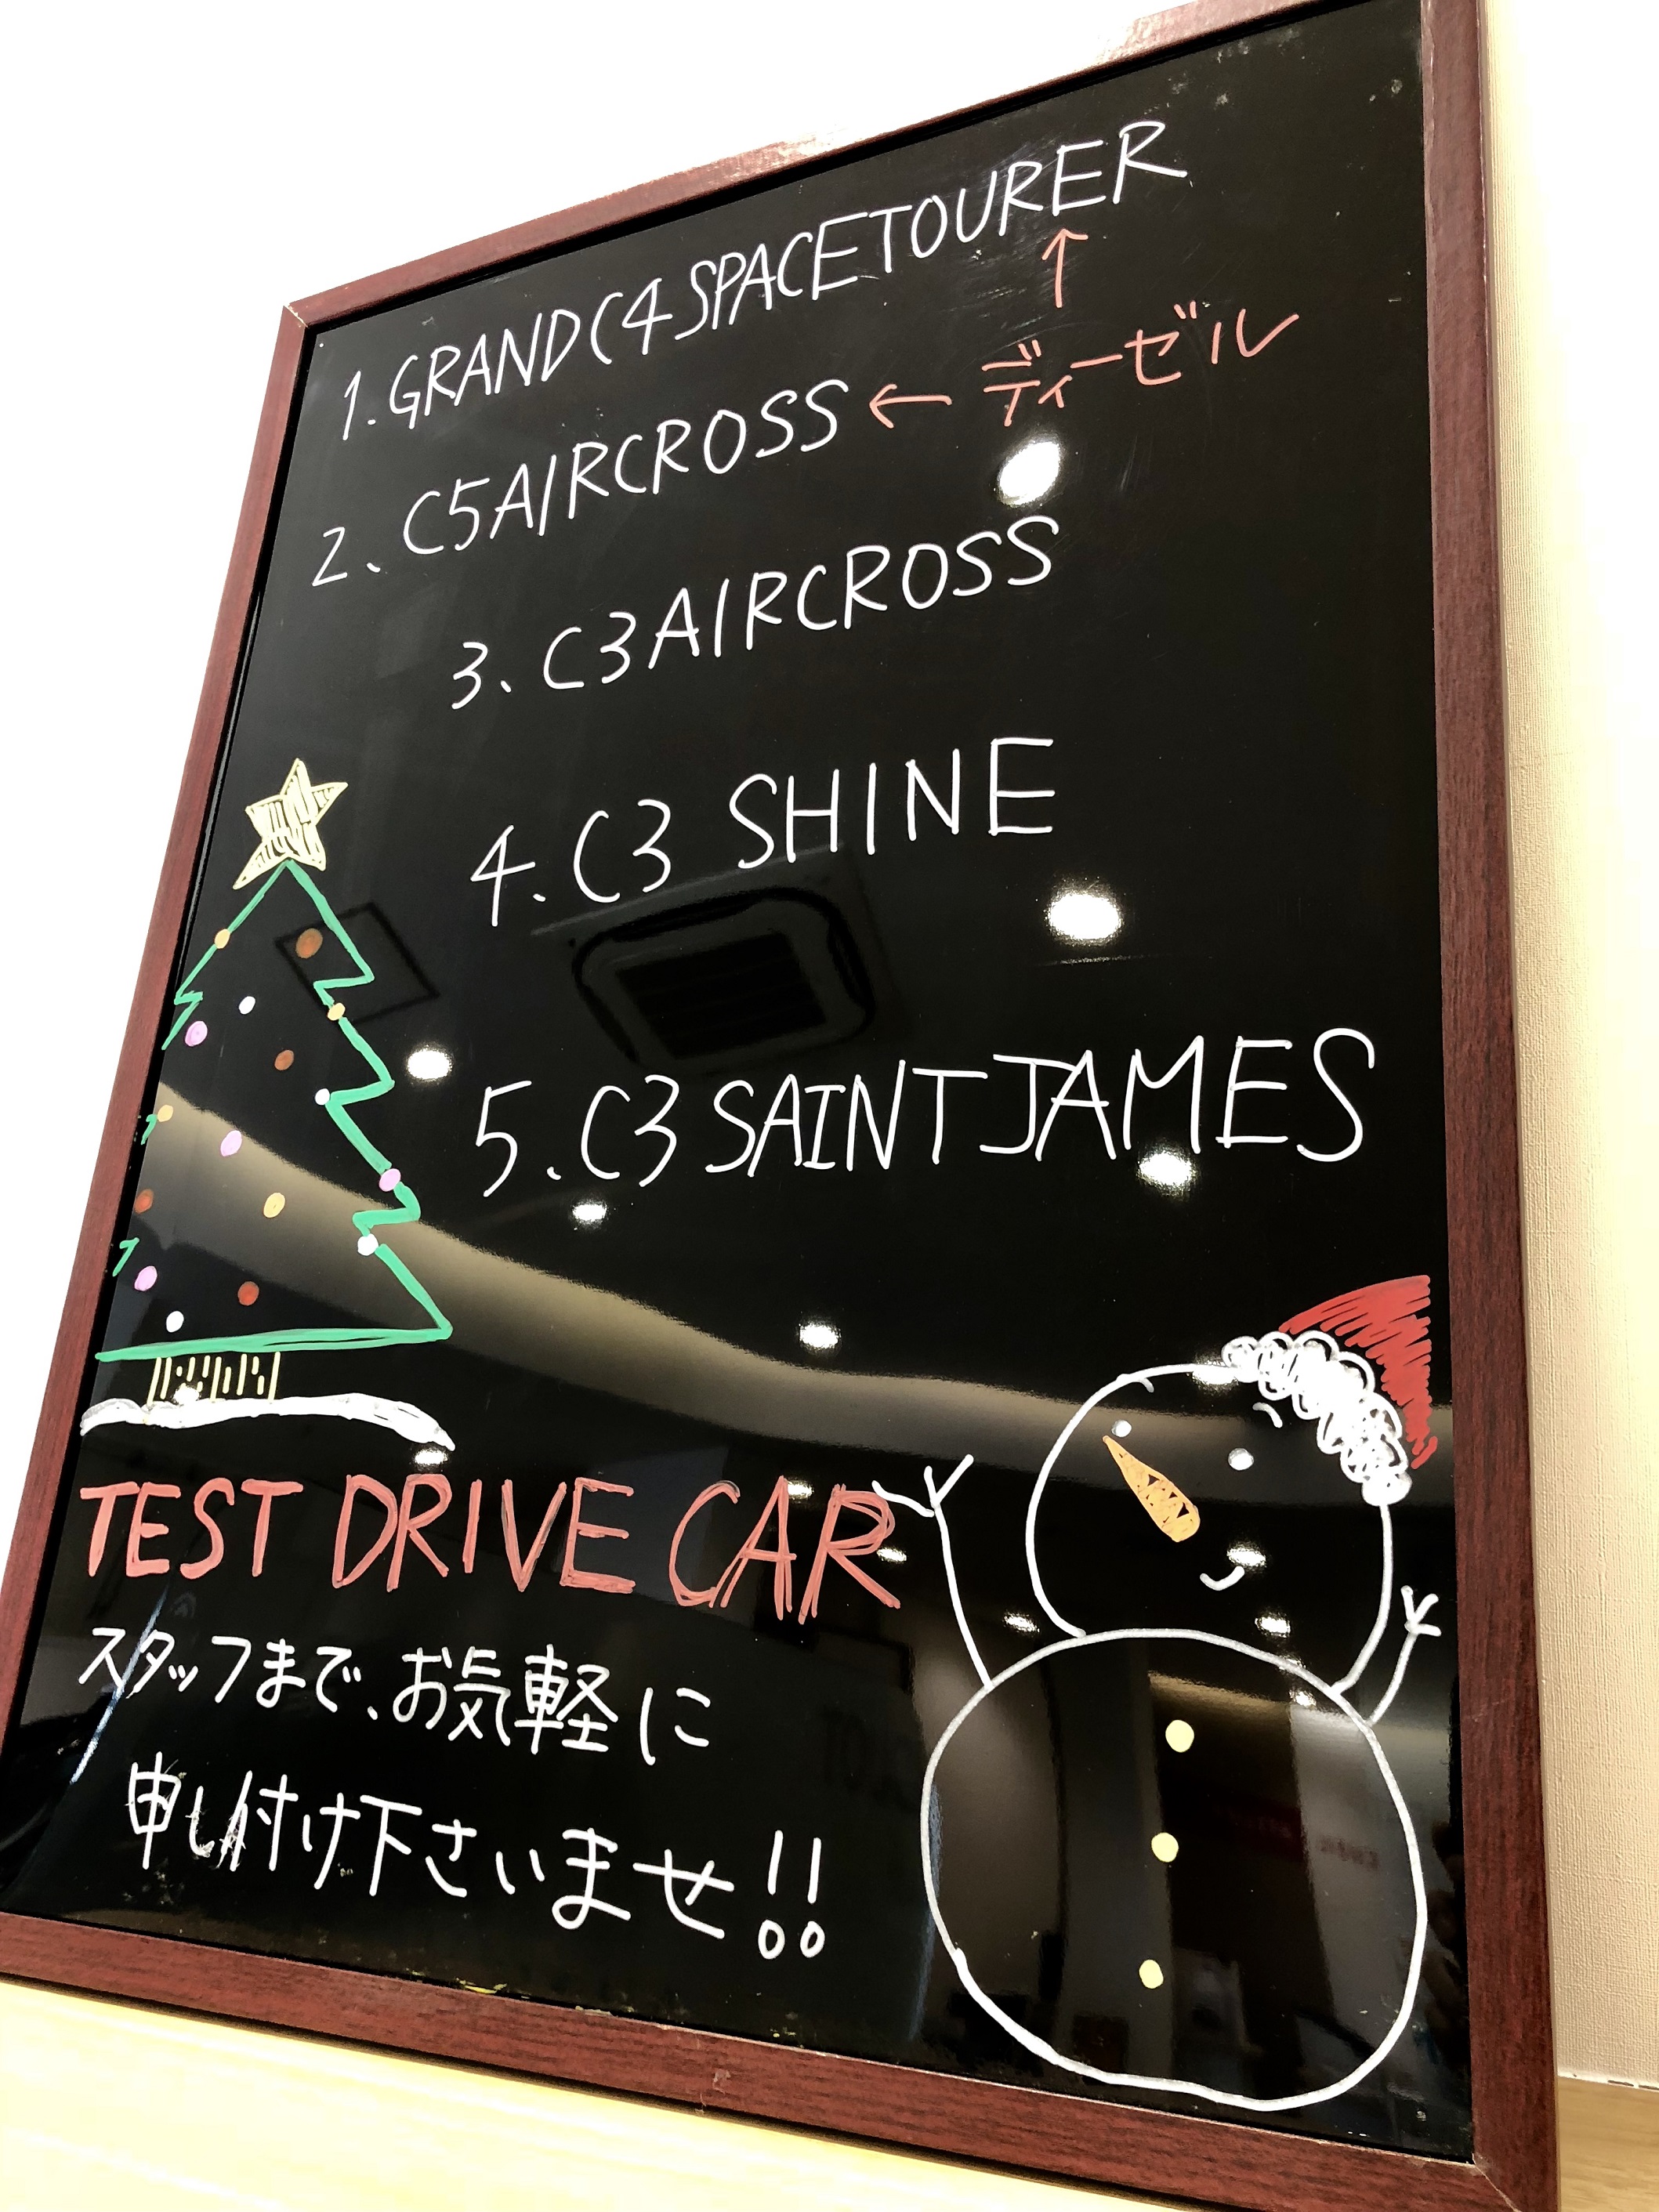 1. GRAND C4 SPACETOURER
↑
2、C5 AIRCROSS ← ディーゼル
3、C3 AIRCROSS
4、C3 SHINE
5、C3 SAINT JAMES
TEST DRIVE CAR
スタッフまで、お気軽に
申し付け下さいませ!!